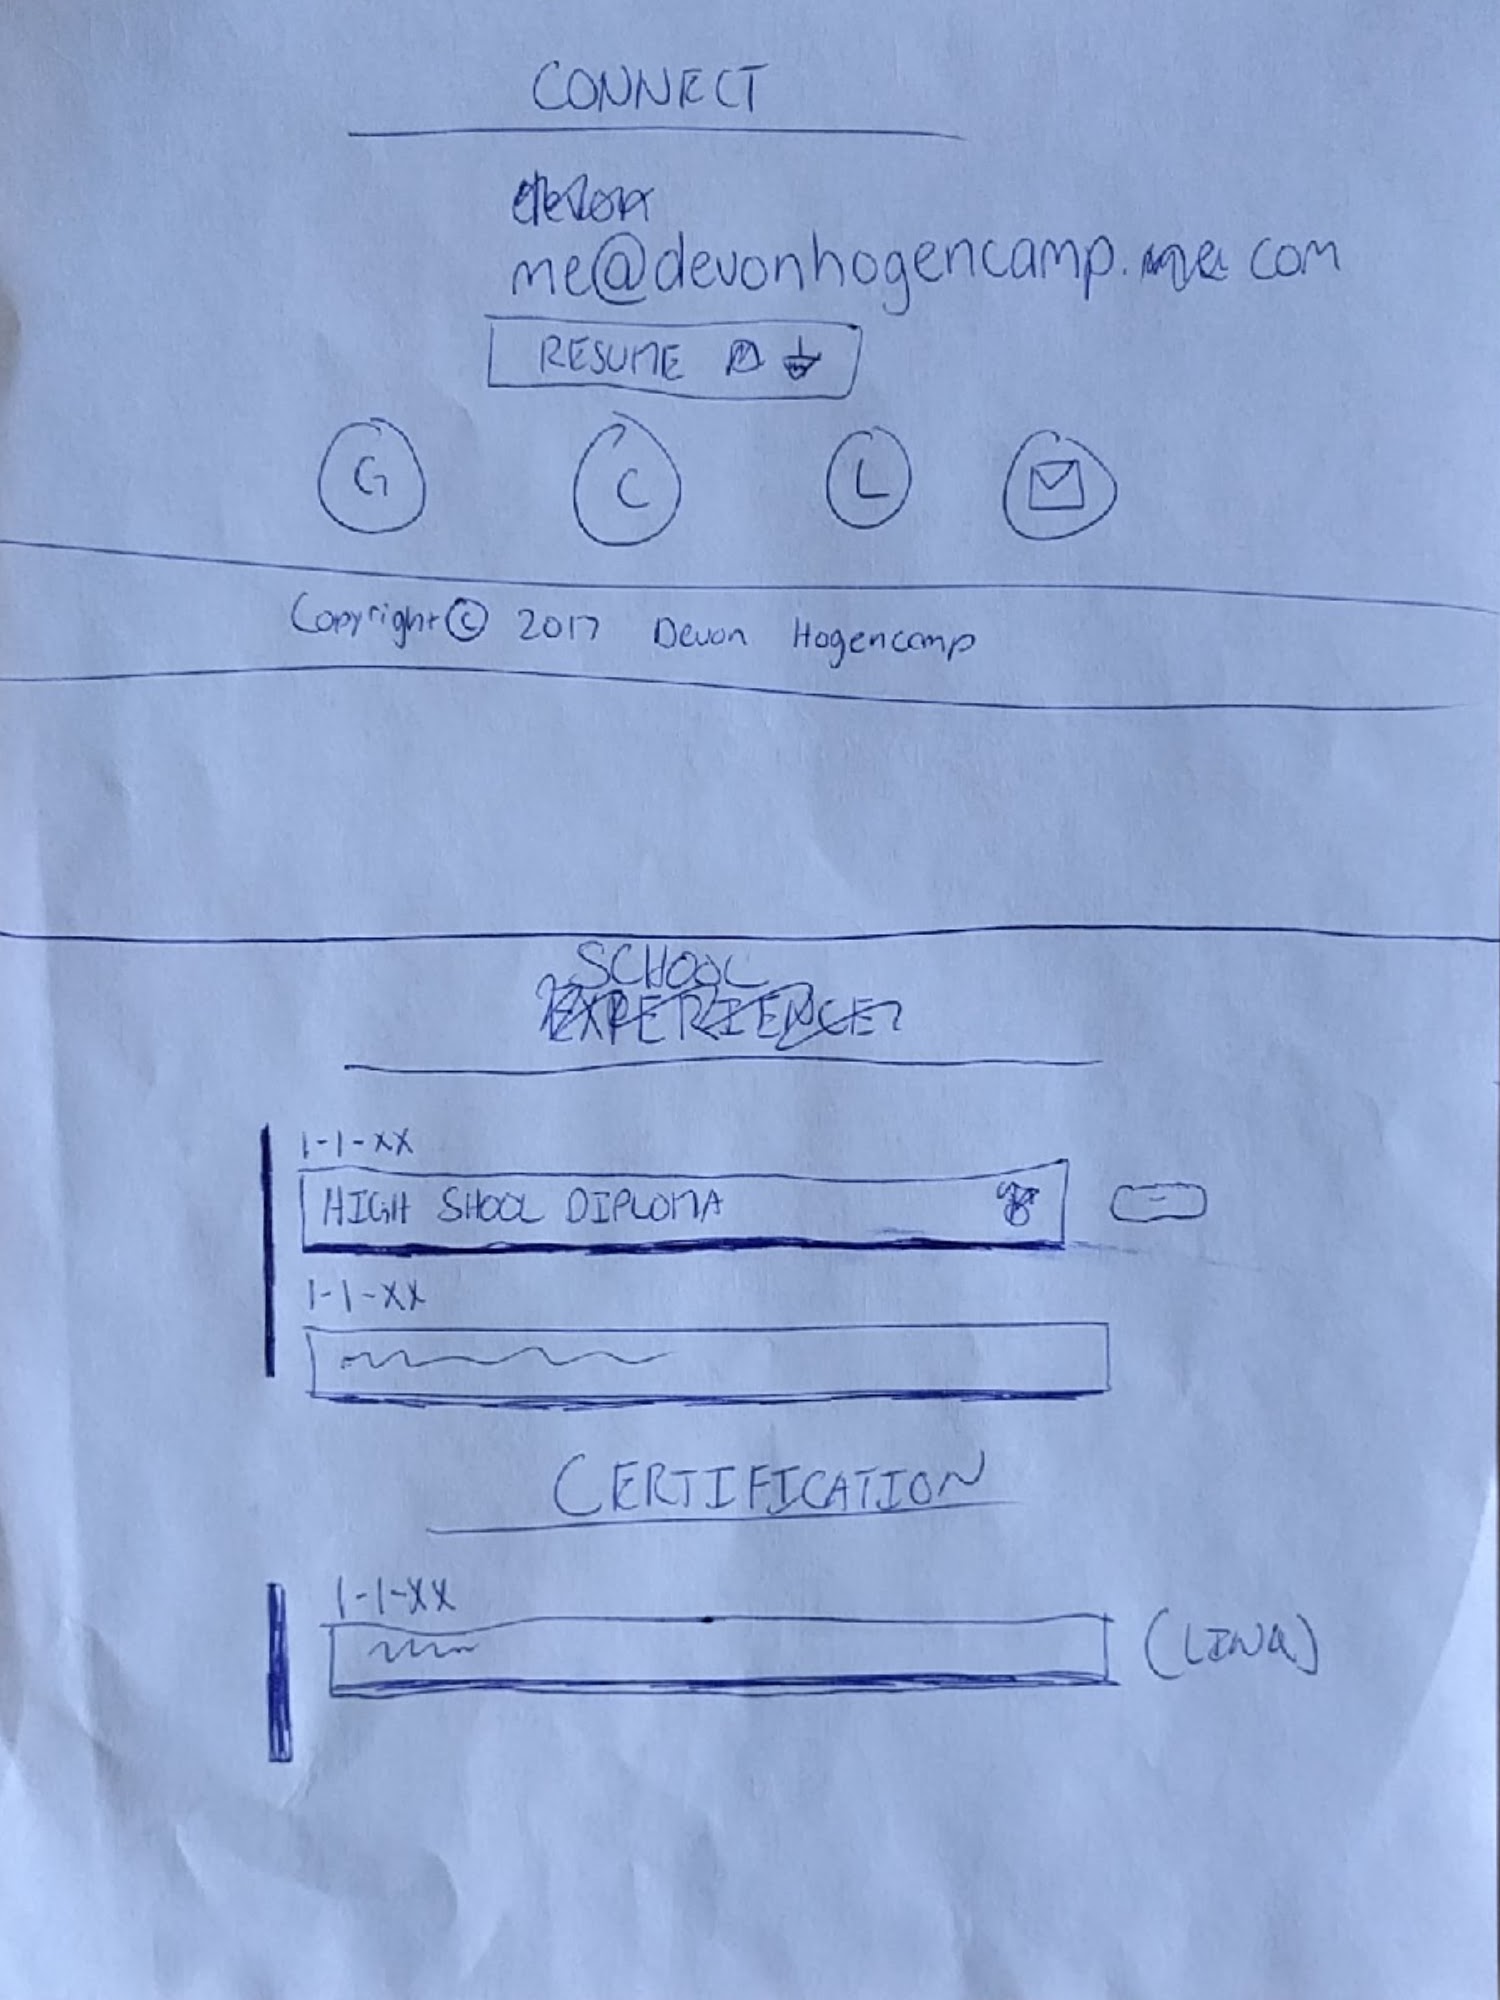 CONNECT
me@devonhogencamp. com
RESUME
G C L
Copyright © 2017 Devon Hogencamp
SCHOOL
EXPERIENCE
1-1-XX
HIGH SHOOL DIPLOMA
1-1-XX
CERTIFICATION
1-1-XX
(LINK)